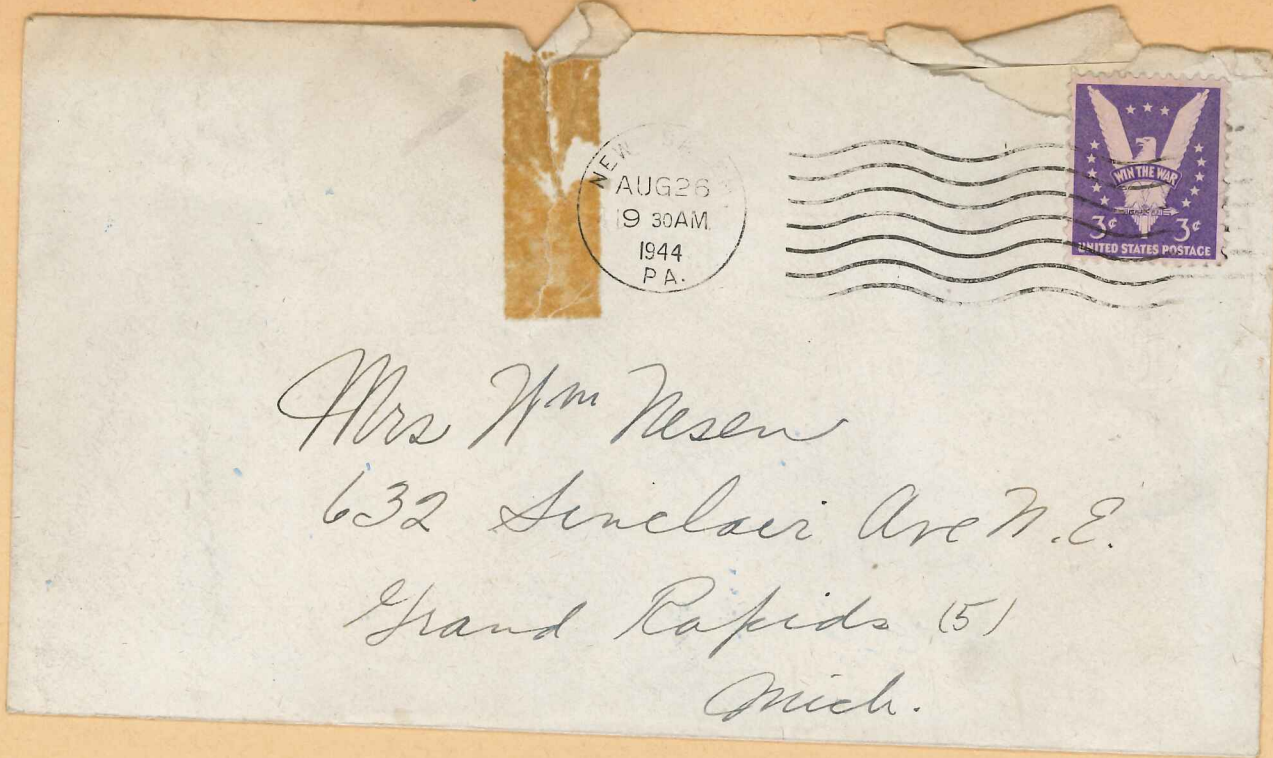 NEW
AUG 26
9 30 AM
1944
PA.
WIN THE WAR
3¢ 3¢
UNITED STATES POSTAGE
Mrs Wm Nesen
632 Sinclair Ave N.E.
Grand Rapids (5)
Mich.